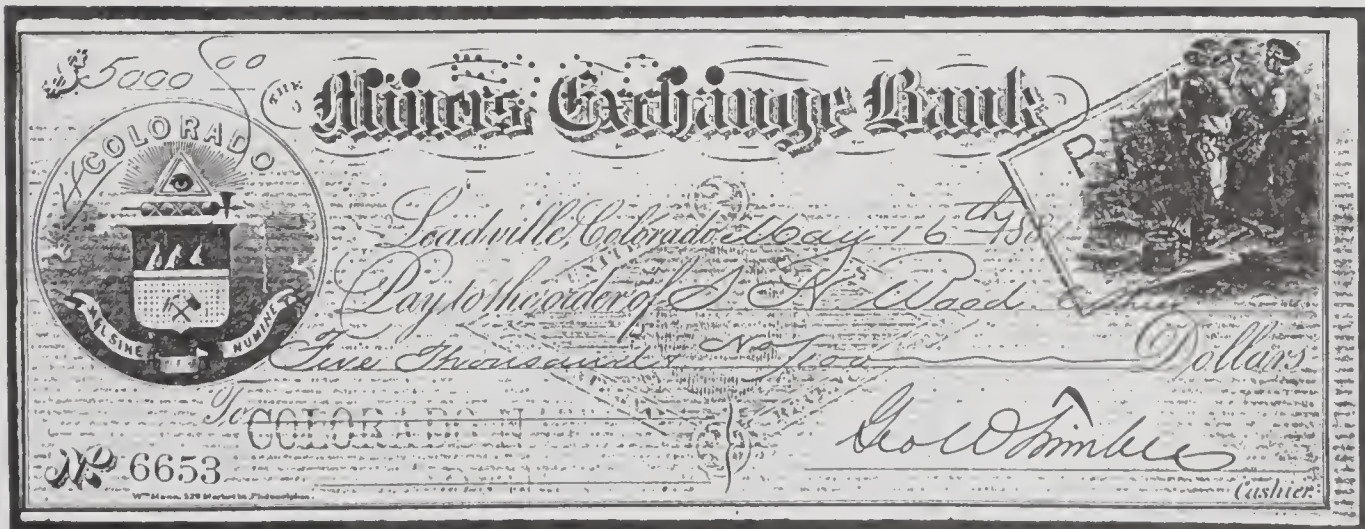 $5000 00
THE Miners Exchange Bank
COLORADO
NIL SINE NUMINE
P
Leadville, Colorado May 16th 188
Pay to the order of S N Wood
Five Thousand & No/100 Dollars
To COLORADO N
No 6653
Geo W Trimble
Cashier.
Wm Mann, 529 Market St. Philadelphia.
UNITED